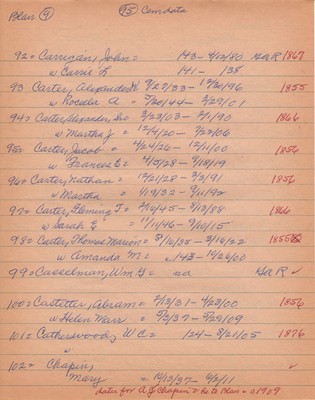 Plan (9) (95) Cem data
92= Carrigan, John = 143- 4/12/80 G.A.R 1867
w Carrie L 141 - 138
93 Carter, Alexander W 9/22/33 - 12/20/96 1855
w Rocelia A = 5/20/44 - 2/27/01
94= Carter, Alexander, Sr = 3/23/03 - 6/1/90 1866
w Martha J = 12/4/20 - 7/22/06
95= Carter, Jacob = 4/24/26 - 12/11/00 1856
w Frances E = 4/5/28 - 9/18/19
96= Carter, Nathan = 12/21/28 - 3/3/91 1856
w Martha = 1/19/32 - 9/11/92
97= Carter, Fleming T = 2/10/45 - 5/12/88 1866
w Sarah E = 11/11/46 - 9/20/15
98= Carter, Thomas Marion = 5/10/35 - 3/16/22 1855
w Amanda M = 143 - 10/26/00
99= Casselman, Wm G = nd G.A.R ✓
100= Castetter, Abram = 2/13/31 - 4/23/00 1856
w Helen Marr = 5/3/37 - 5/29/09
101= Catherwood, W C = 124 - 8/21/05 1876
w
102= Chapin, ✓
Mary = 10/13/37 - 2/2/11
dates for A J Chapin &
to Blair = 1909